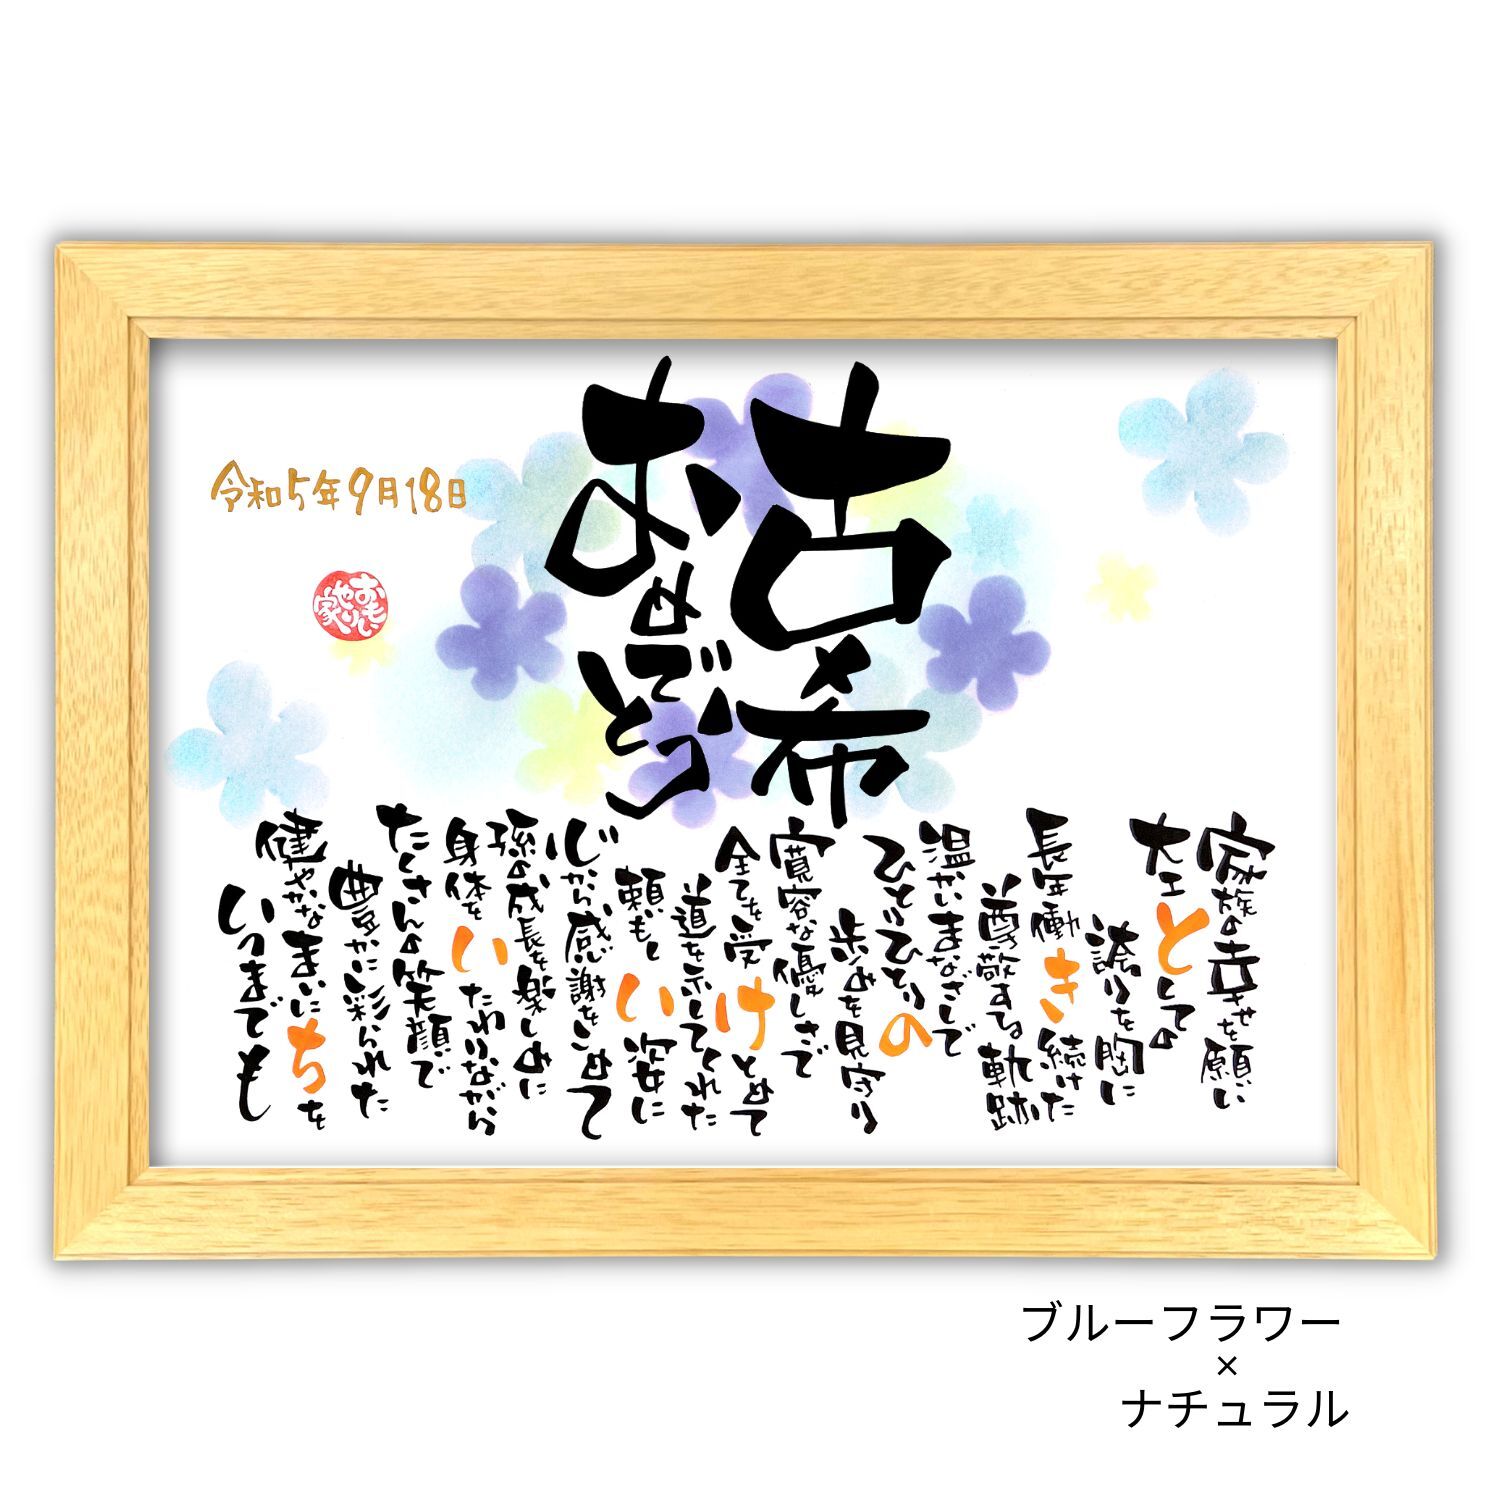 古希
おめでとう
令和5年9月18日
おもい
やり
家
家族の幸せを願い
大工としての
誇りを胸に
長年働き続けた
尊敬する軌跡
温かいまなざしで
ひとりひとりの
歩みを見守り
寛容な優しさで
全てを受けとめて
道を示してくれた
頼もしい姿に
心から感謝をこめて
孫の成長を楽しみに
身体をいたわりながら
たくさんの笑顔で
豊かに彩られた
健やかなまいにちを
いつまでも
ブルーフラワー
×
ナチュラル